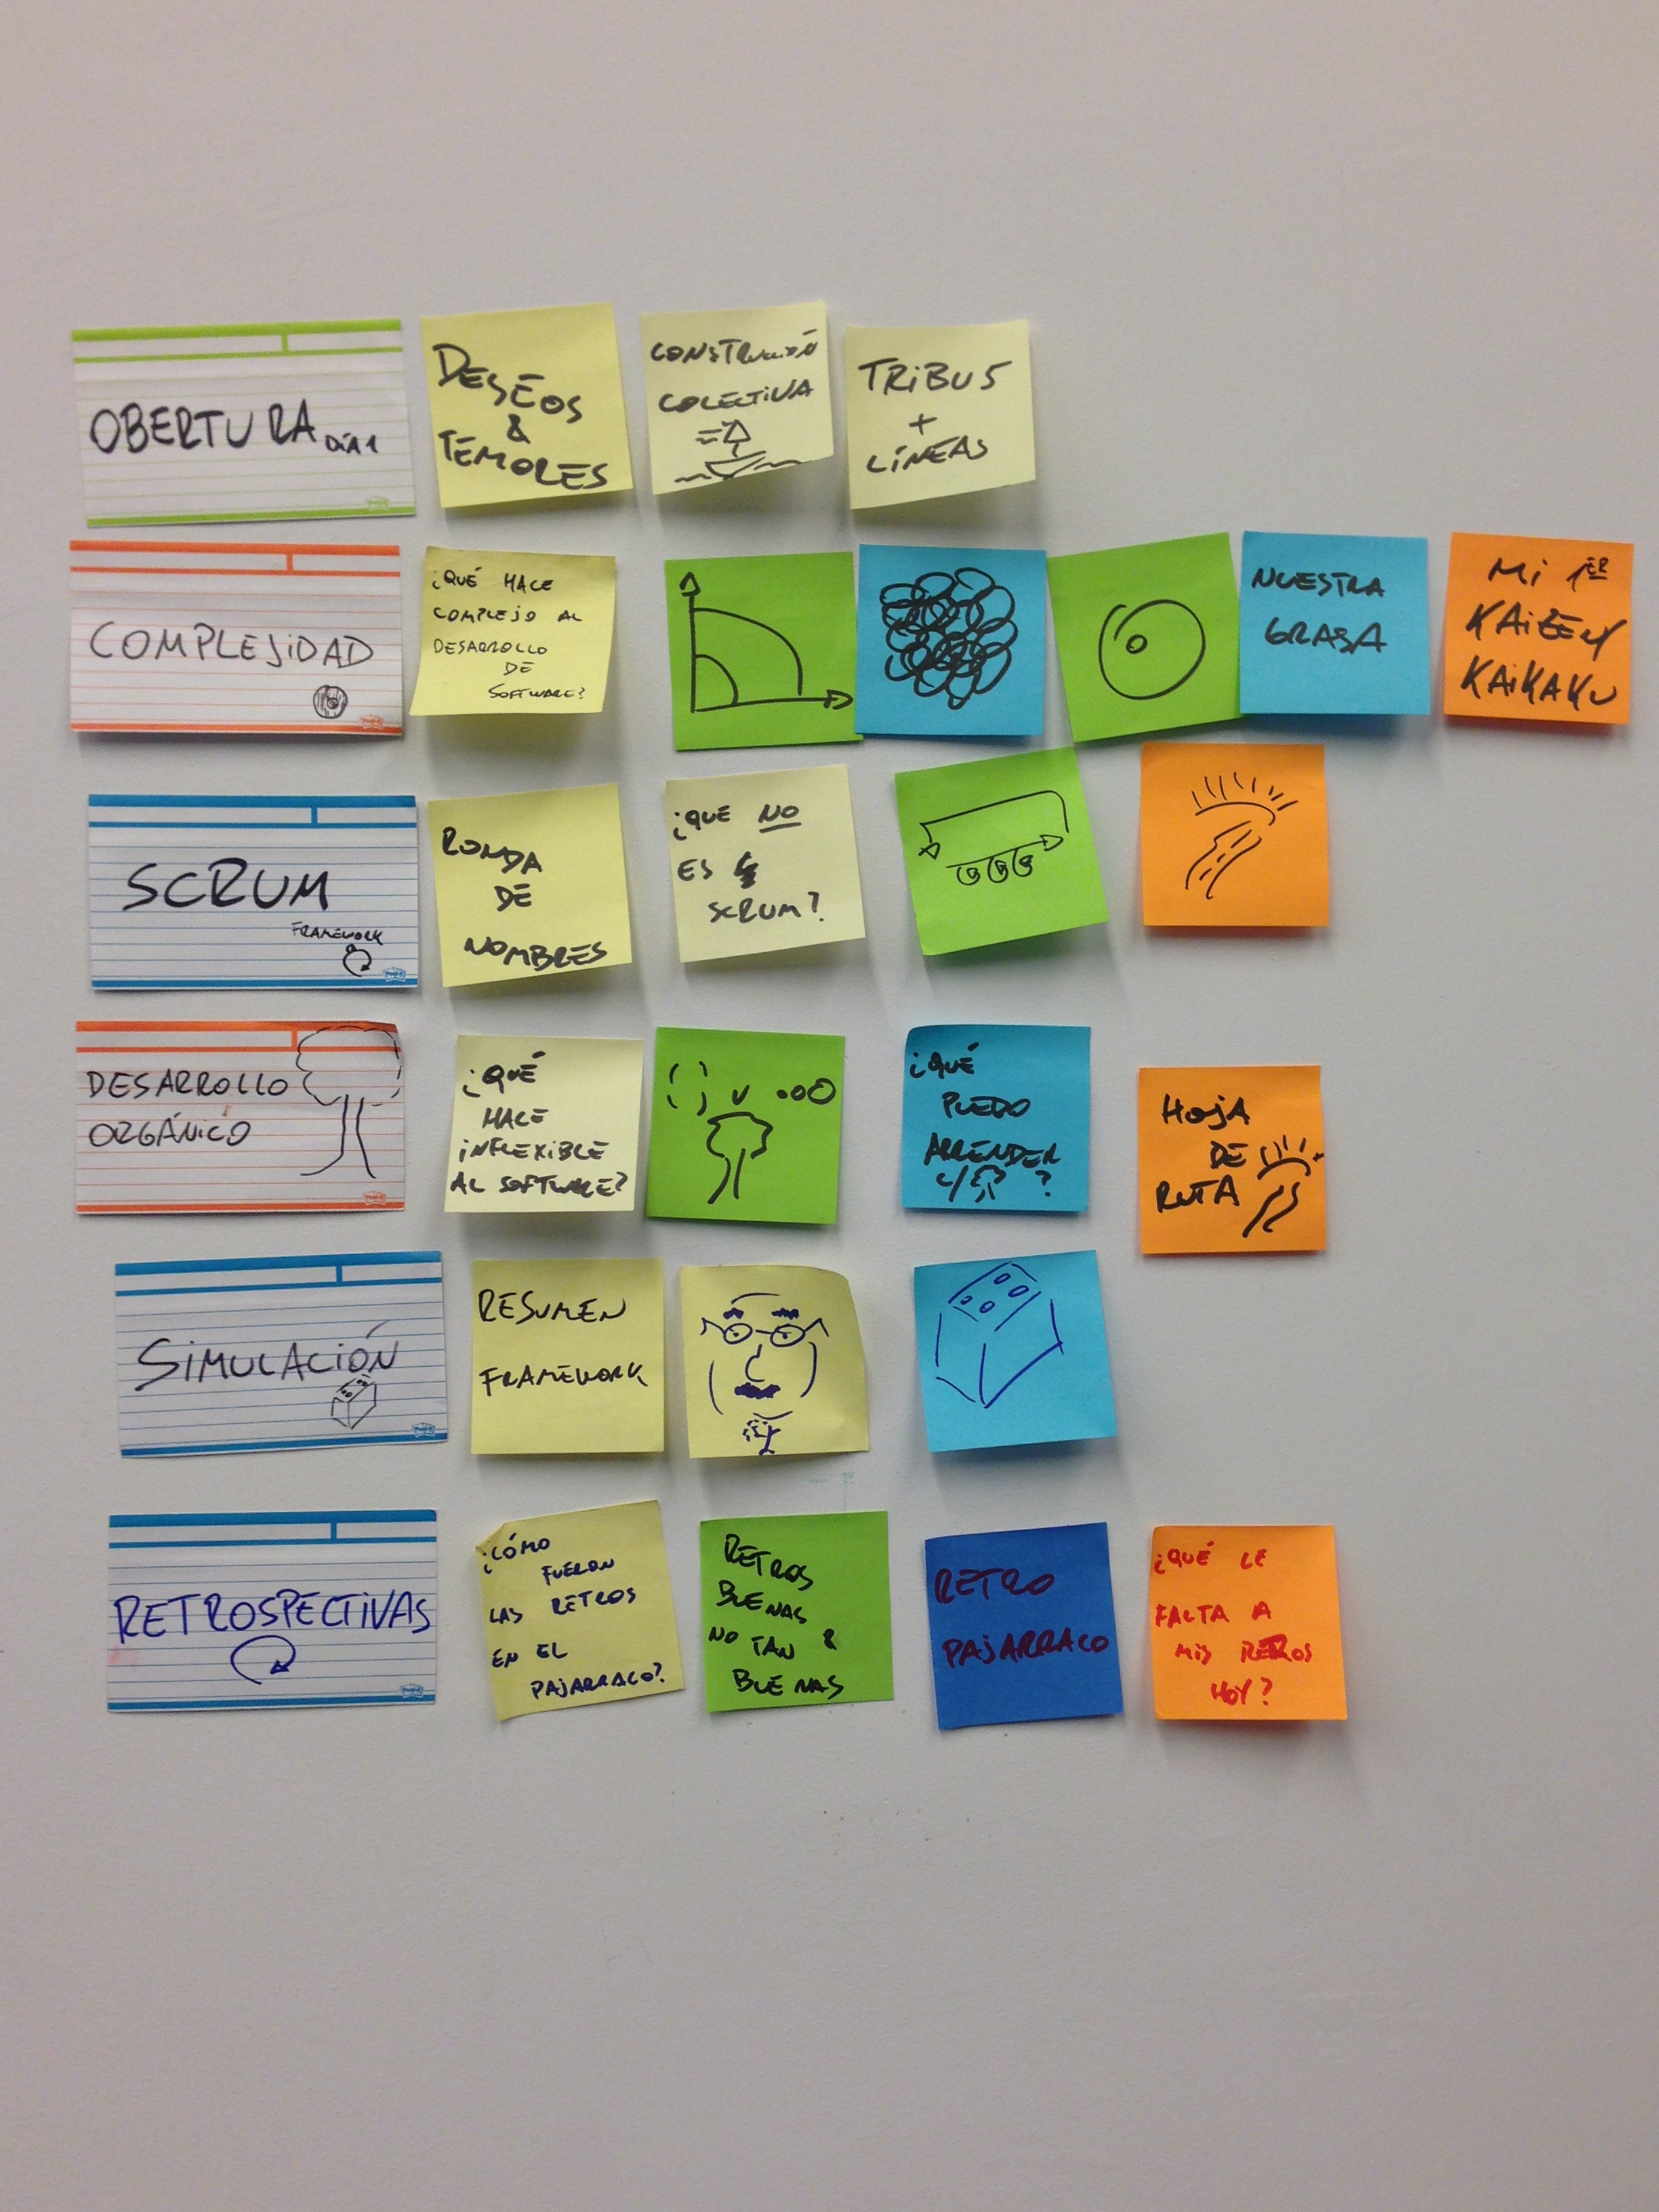 OBERTURA DÍA 1
DESEOS
&
TEMORES
CONSTRUCCIÓN
COLECTIVA
TRIBUS
+
LÍNEAS
COMPLEJIDAD
¿QUÉ HACE
COMPLEJO AL
DESARROLLO
DE
SOFTWARE?
NUESTRA
GRASA
MI 1ER
KAIZEN
KAIKAKU
SCRUM
FRAMEWORK
RONDA
DE
NOMBRES
¿QUE NO
ES
SCRUM?
DESARROLLO
ORGÁNICO
¿QUÉ
HACE
INFLEXIBLE
AL SOFTWARE?
¿QUÉ
PUEDO
APRENDER
C/ ?
HOJA
DE
RUTA
SIMULACIÓN
RESUMEN
FRAMEWORK
RETROSPECTIVAS
¿CÓMO
FUERON
LAS RETROS
EN EL
PAJARRACO?
RETROS
BUENAS
NO TAN &
BUENAS
RETRO
PAJARRACO
¿QUÉ LE
FALTA A
MIS RETROS
HOY?